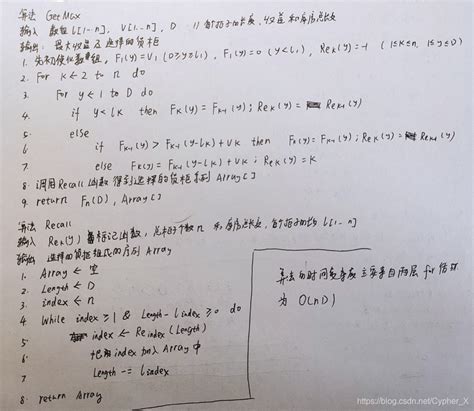 算法 GetMax
输入 数组 l[1..n], V[1..n], D // 各柜子的长度、收益和仓库总长
输出: 最大收益及选择的货柜
1. 先初始化数组, F₁(y)=V₁ (D≥y≥l₁), F₁(y)=0 (y<l₁), Rek(y)=-1 (1≤k≤n, 1≤y≤D)
2. For k ← 2 to n do
3. For y ← 1 to D do
4. if y < lk then Fk(y) = Fk-1(y); Rek(y) = Rek-1(y)
5. else
6. if Fk-1(y) > Fk-1(y-lk)+Vk then Fk(y) = Fk-1(y); Rek(y) = Rek-1(y)
7. else Fk(y) = Fk-1(y-lk)+Vk; Rek(y)=k
8. 调用Recall函数得到选择的货柜序列 Array[]
9. return Fn(D), Array[]
算法 Recall
输入 Rek(y) 备标记函数, 柜子个数n 和仓库总长D, 各柜子的长 l[1..n]
输出 选择的货柜组成的序列 Array
1. Array ← 空
2. Length ← D
3. index ← n
4. While index ≥ 1 & Length - lindex ≥ 0 do
5. index ← Reindex(Length)
6. 把 index 加入 Array 中
7. Length -= lindex
8. return Array
算法的时间复杂度主要来自两层 for 循环
为 O(nD)
https://blog.csdn.net/Cypher_X